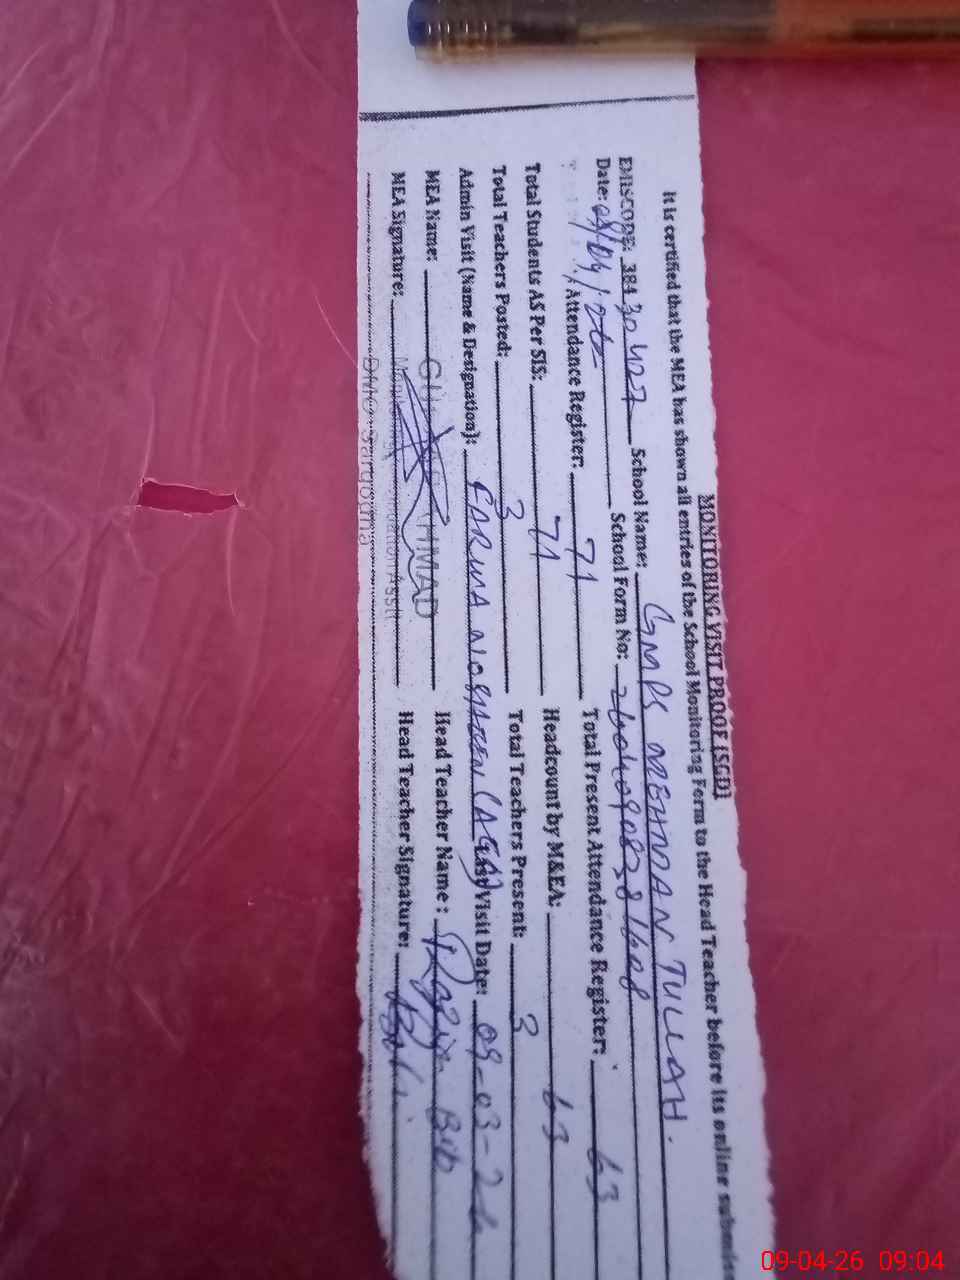 MONITORING VISIT PROOF (SGD)
It is certified that the MEA has shown all entries of the School Monitoring Form to the Head Teacher before its online
EMISCODE: 38430427 School Name: GMPS MEHMDAN TULLAH.
Date: School Form No:
Attendance Register: 71 Total Present Attendance Register: 63
Total Students AS Per SIS: 71 Headcount by M&EA: 63
Total Teachers Posted: 3 Total Teachers Present: 3
Admin Visit (Name & Designation): Visit Date: 09-03-26
MEA Name: AHMAD Head Teacher Name: Razia Bibi
MEA Signature: Head Teacher Signature:
DMO Sargodha
09-04-26 09:04